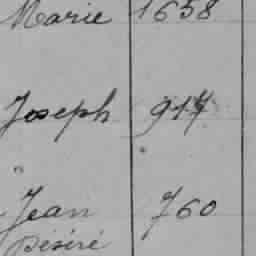 Marie 1658
Joseph 917
"
Jean 760
Désiré